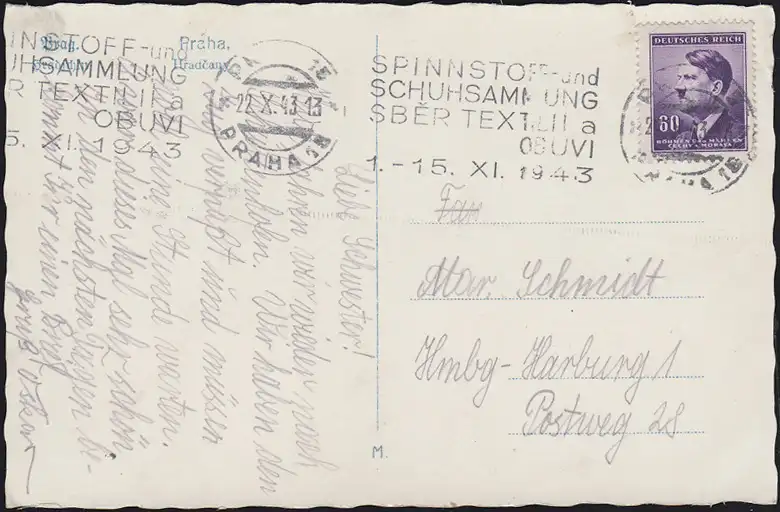 Prag,
Praha,
Hradčany
INSTOFF-und
UHSAMMLUNG
R TEXTILII a
OBUVI
5. XI. 1943
22.X.43-13
PRAHA
SPINNSTOFF-und
SCHUHSAMMLUNG
SBĚR TEXTILII a
OBUVI
1.-15. XI. 1943
DEUTSCHES REICH
60
BÖHMEN UND MÄHREN
ČECHY A MORAVA
Mar. Schmidt
Hmbg-Harburg 1
Postweg 28
M.
Liebe Schwester!
fahren wir wieder nach
Wir haben den
Zug verpaßt und müssen
eine Stunde warten.
dieses Mal sehr schön
In den nächsten Tagen be-
kommt Ihr einen Brief
Gruß Oskar